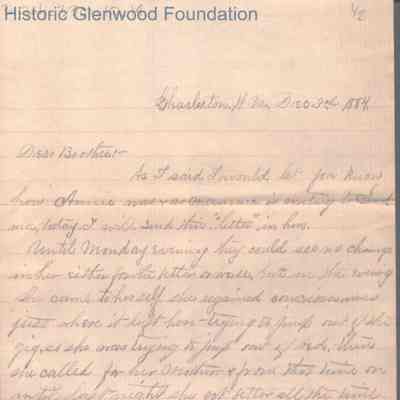 Historic Glenwood Foundation
1/2
Charleston, W. Va, Dec 3rd 1884
Dear Brother:-
As I said I would let you know
how Annie was & as mamma is writing to
ma, today I will send this "letter" in hers.
Until Monday evening they could see no change
in her either for the better or worse, but in the evening
she came to herself she regained consciousness
just where it left her - trying to jump out of the
gig, as she was trying to jump out of bed.
she called for her Mother & from that time on
until last night she got better all the time